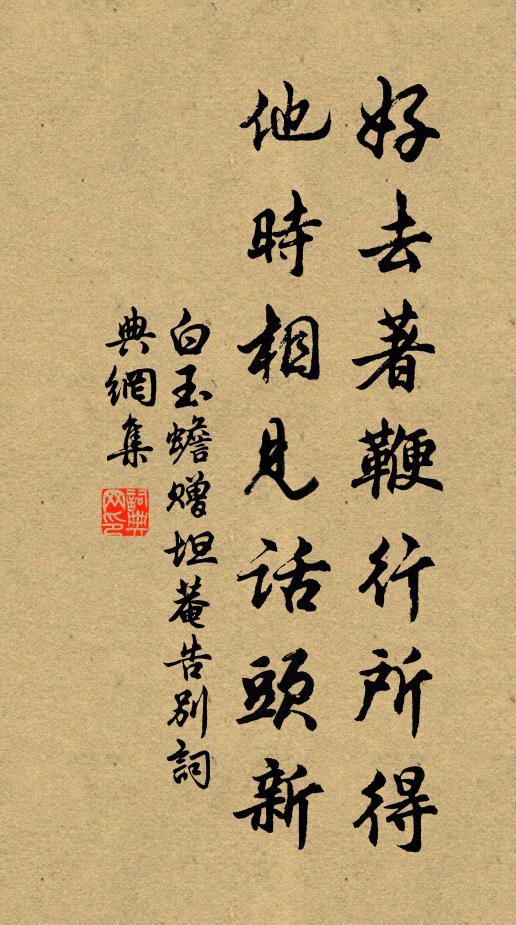 好去著鞭行所得
他時相見話頭新
白玉蟾贈坦菴告別詞
典網集
詞典网印